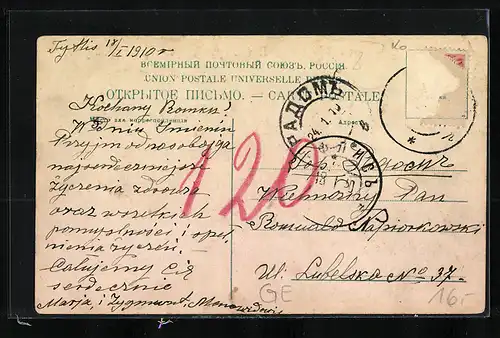 Tyflis 18/I 1910 r
ВСЕМІРНЫЙ ПОЧТОВЫЙ СОЮЗЪ. РОССІЯ.
UNION POSTALE UNIVERSELLE
ОТКРЫТОЕ ПИСЬМО. — CARTE POSTALE
Kochany Romku!
W dniu Imienin
Przyjm od nas
najserdeczniejsze
życzenia zdrowia
oraz wszelkich
pomyślności i speł-
nienia życzeń. —
Całujemy Cię
serdecznie
Marja i Zygmunt
РАДОМЪ
24.1.
Адресъ
120
Wielmożny Pan
Romuald Napiórkowski
Ul: Lubelska No 37.
GE
16,-